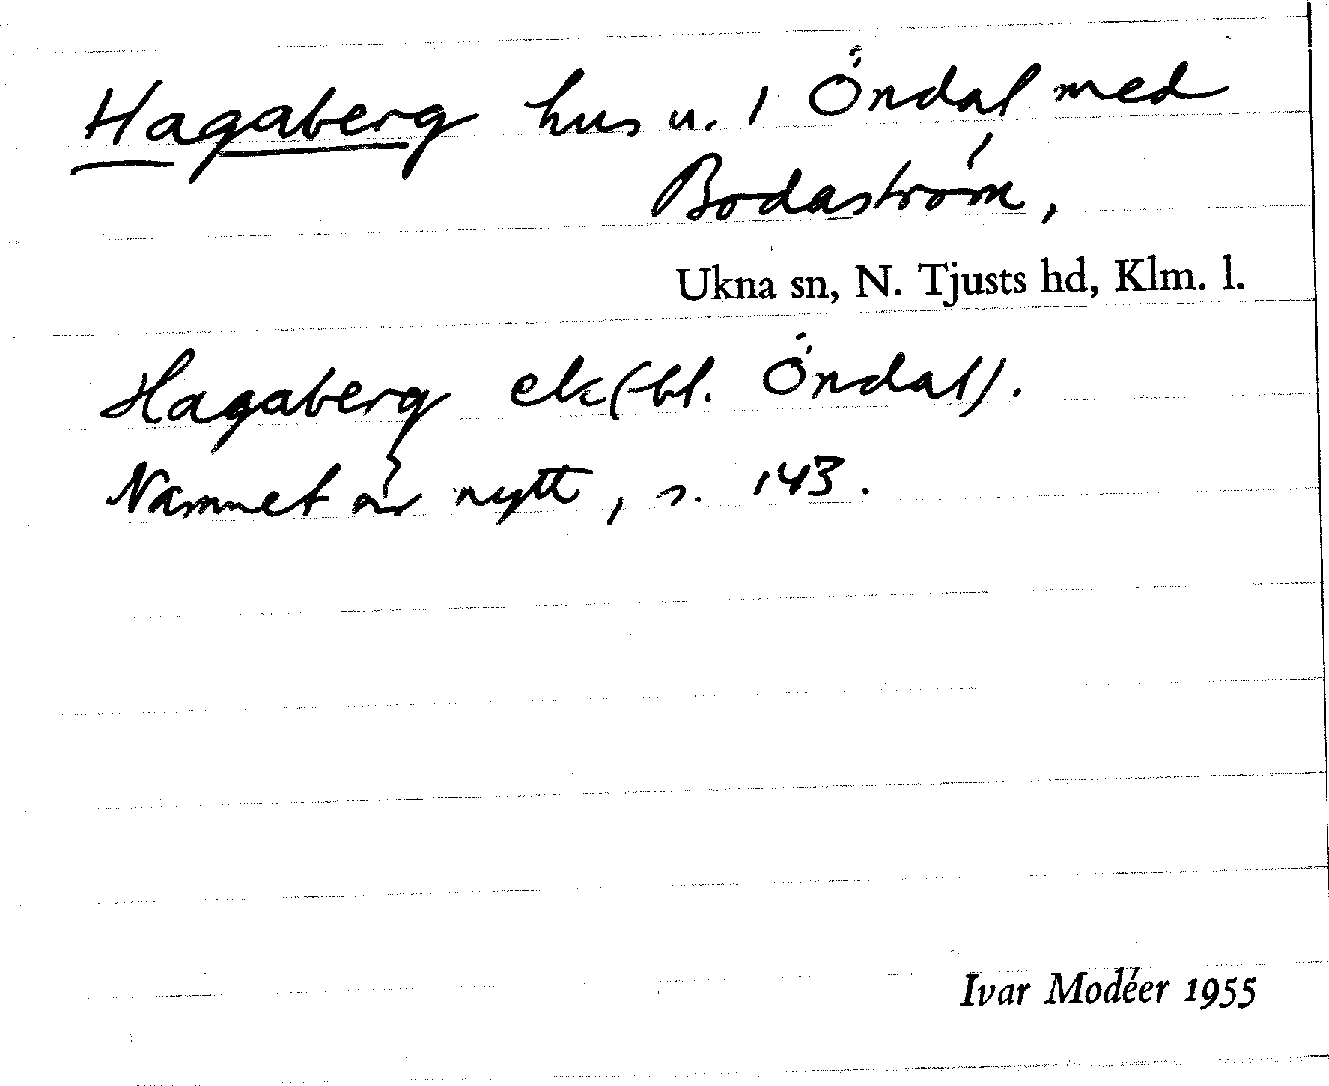 Hagaberg hus u. 1 Öndal med
Bodaström,
Ukna sn, N. Tjusts hd, Klm. l.
Hagaberg ek(-bl. Öndal).
Namnet är nytt, s. 143.
Ivar Modéer 1955